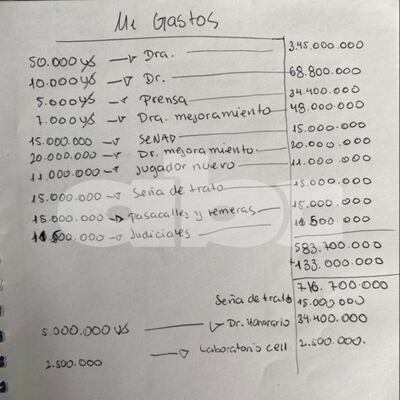 Mi Gastos
50.000 u$ → Dra. 345.000.000
10.000 u$ → Dr. 68.800.000
5.000 u$ → Prensa 34.400.000
7.000 u$ → Dra. mejoramiento 48.000.000
15.000.000 → SENAD 15.000.000
20.000.000 → Dr. mejoramiento. 20.000.000
11.000.000 → jugador nuevo 11.000.000
15.000.000 → Seña de trato 15.000.000
15.000.000 → pasacalles y remeras 15.000.000
11.500.000 → Judiciales 11.500.000
583.700.000
+133.000.000
716.700.000
Seña de trato 15.000.000
5.000.000 u$ → Dr. Honorario 34.400.000
2.500.000 → Laboratorio cell 2.500.000.